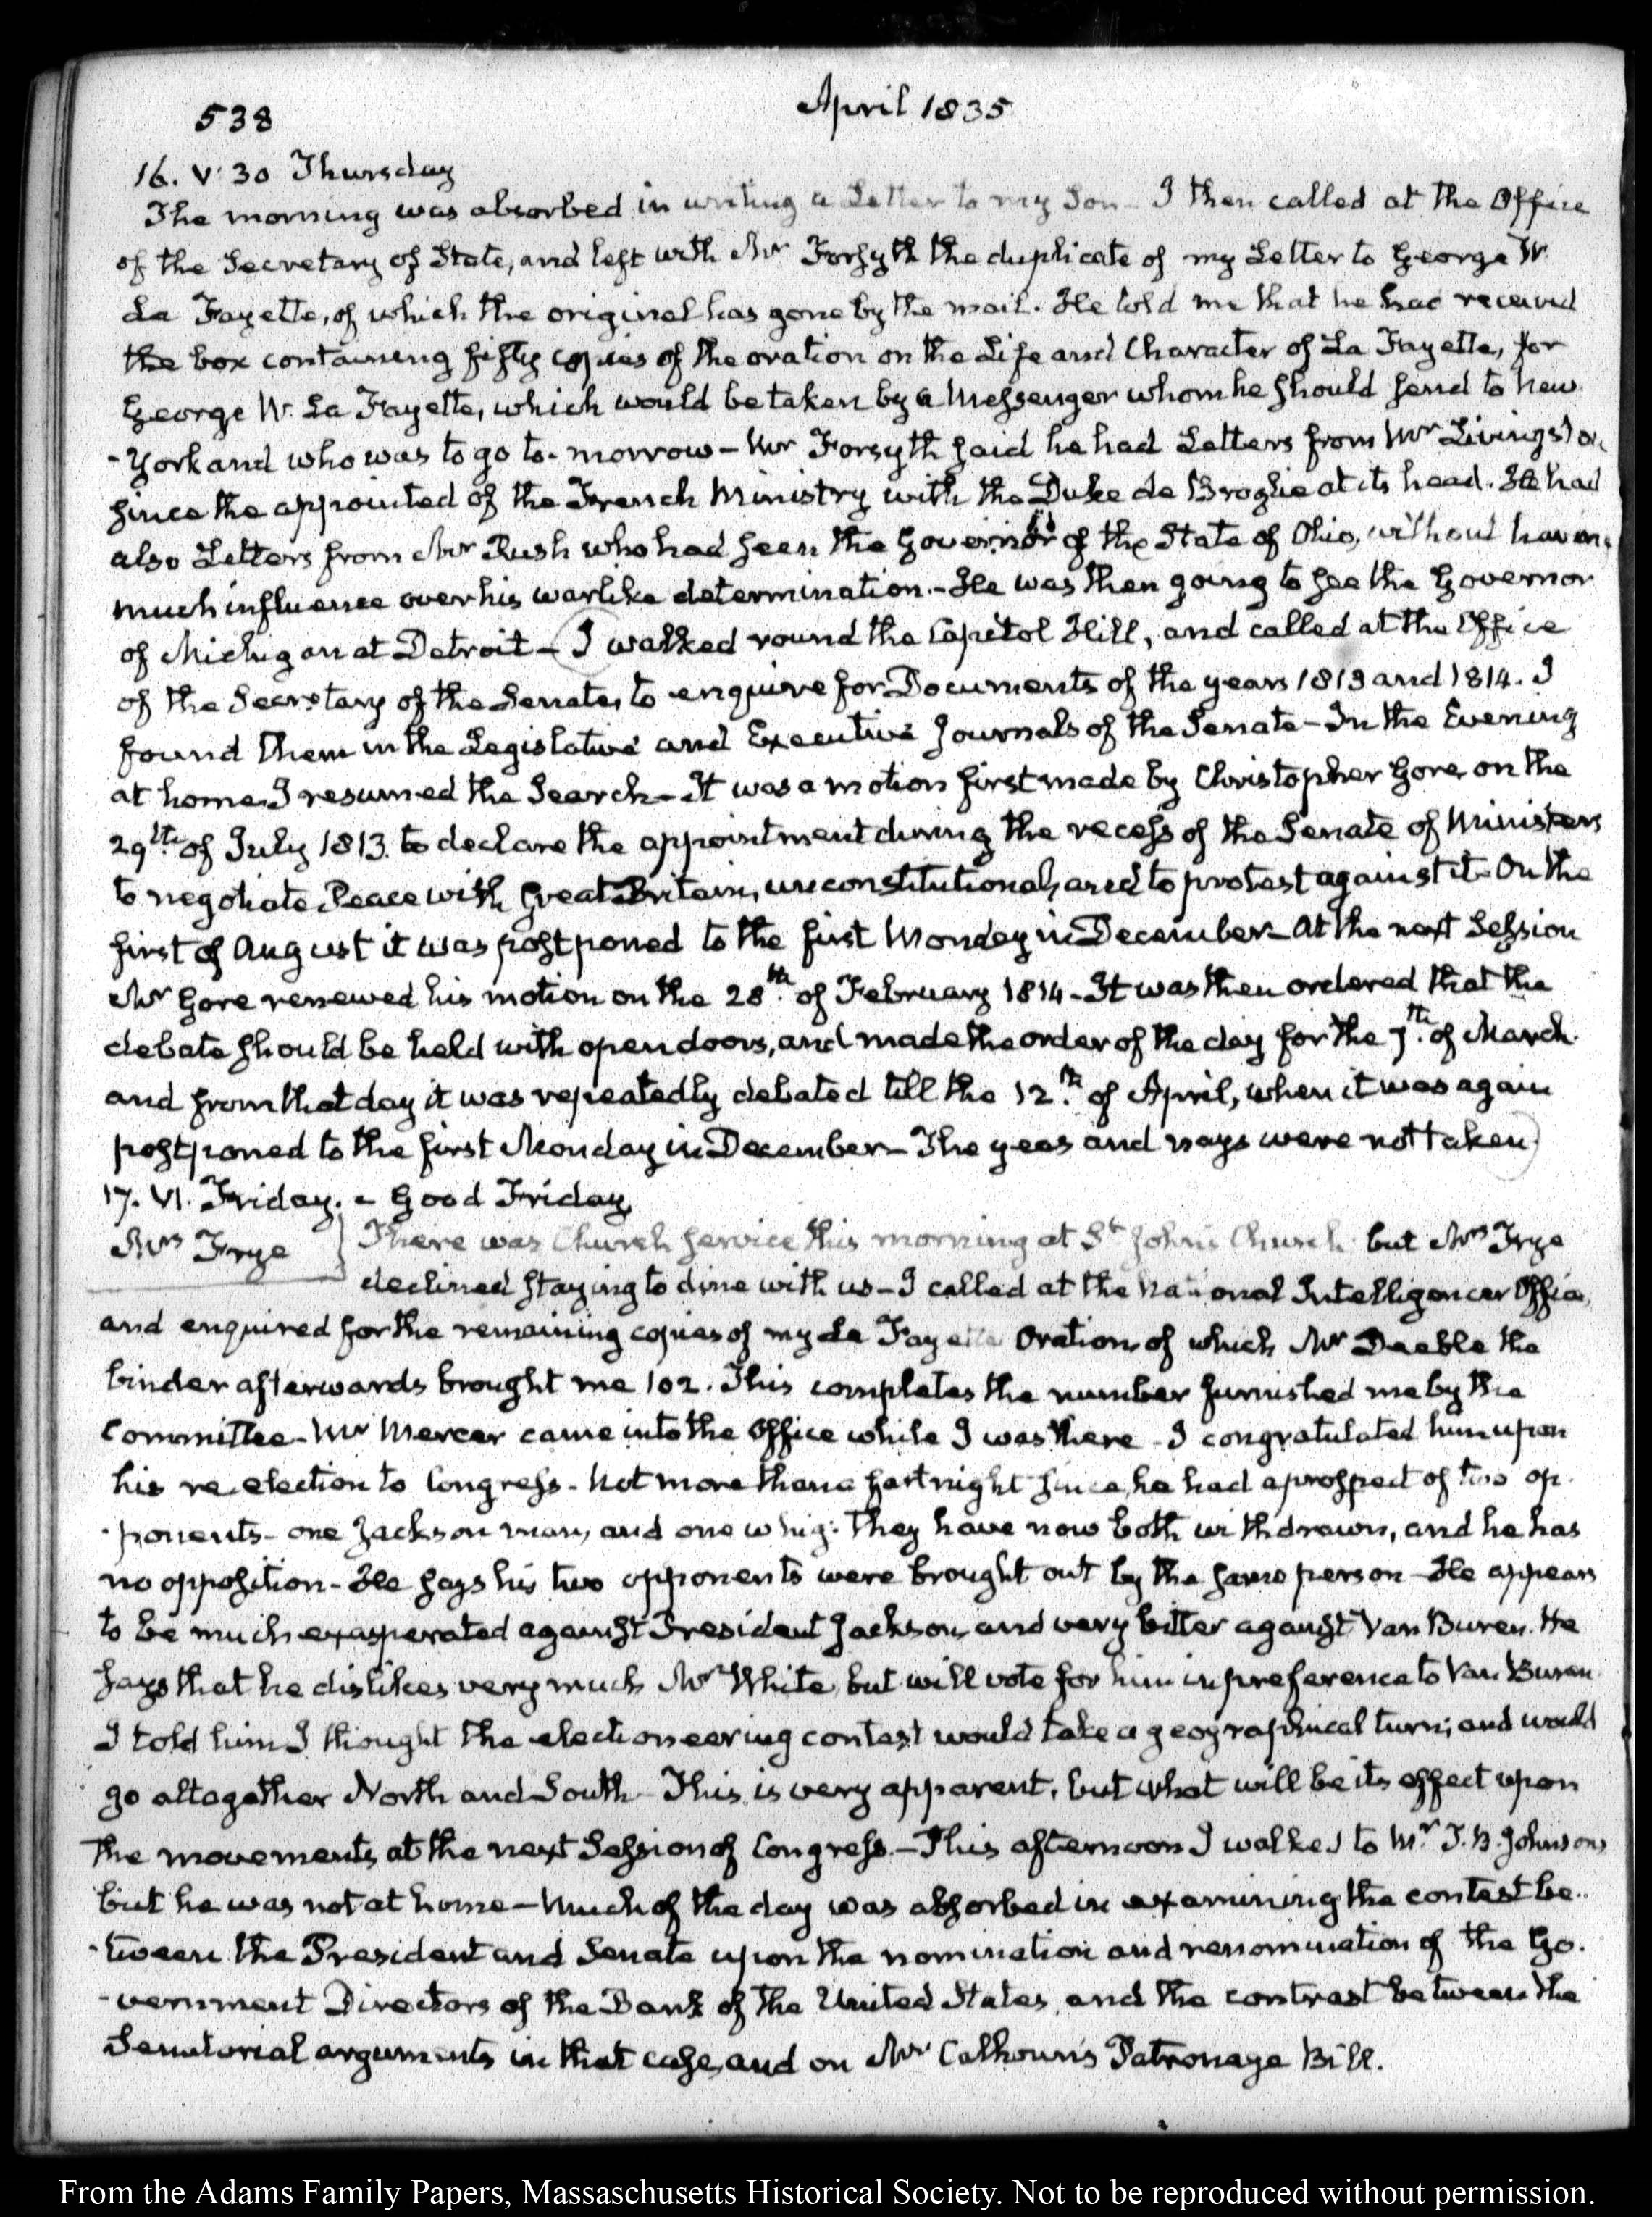 538
April 1835
16. V:30 Thursday
The morning was absorbed in writing a Letter to my Son - I then called at the Office
of the Secretary of State, and left with Mr Forsyth the duplicate of my Letter to George W.
La Fayette, of which the original has gone by the mail. He told me that he had received
the box containing fifty copies of the oration on the Life and Character of La Fayette, for
George W. La Fayette, which would be taken by a Messenger whom he should send to New
-York and who was to go to-morrow - Mr Forsyth said he had Letters from Mr Livingston,
since the appointed of the French Ministry with the Duke de Broglie at its head. He had
also Letters from Mr Rush who had seen the Governor of the State of Ohio, without having
much influence over his warlike determination. - He was then going to see the Governor
of Michigan at Detroit - I walked round the Capitol Hill, and called at the Office
of the Secretary of the Senate, to enquire for Documents of the years 1813 and 1814. I
found them in the Legislative and Executive Journals of the Senate - In the Evening
at home, I resumed the Search - It was a motion first made by Christopher Gore, on the
29th. of July 1813. to declare the appointment during the recess of the Senate of Ministers
to negotiate Peace with Great-Britain, unconstitutional, and to protest against it - On the
first of August it was postponed to the first Monday in December - At the next Session
Mr Gore renewed his motion on the 28th. of February 1814 - It was then ordered that the
debate should be held with open doors, and made the order of the day for the 7th. of March.
and from that day it was repeatedly debated till the 12th. of April, when it was again
postponed to the first Monday in December - The yeas and nays were not taken
17. VI. Friday. - Good Friday
Mrs Frye } There was Church Service this morning at St Johns Church but Mrs Frye
declined staying to dine with us - I called at the National Intelligencer Office,
and enquired for the remaining copies of my La Fayette Oration, of which Mr Deeble the
binder afterwards brought me 102. This completes the number furnished me by the
Committee - Mr Mercer came into the Office while I was there - I congratulated him upon
his re-election to Congress - Not more than a fortnight since, he had a prospect of two op-
-ponents - one Jackson man, and one whig: They have now both withdrawn, and he has
no opposition - He says his two opponents were brought out by the same person - He appears
to be much exasperated against President Jackson, and very bitter against Van Buren. He
says that he dislikes very much Mr White, but will vote for him in preference to Van Buren.
I told him I thought the electioneering contest would take a geographical turn; and would
go altogether North and South - This is very apparent, but what will be its effect upon
the movements at the next Session of Congress. - This afternoon I walked to Mr. J. B. Johnson's
but he was not at home - Much of the day was absorbed in examining the contest be-
-tween the President and Senate upon the nomination and renomination of the Go-
-vernment Directors of the Bank of the United States, and the contrast between the
Senatorial arguments in that case, and on Mr Calhoun's Patronage Bill.
From the Adams Family Papers, Massaschusetts Historical Society. Not to be reproduced without permission.